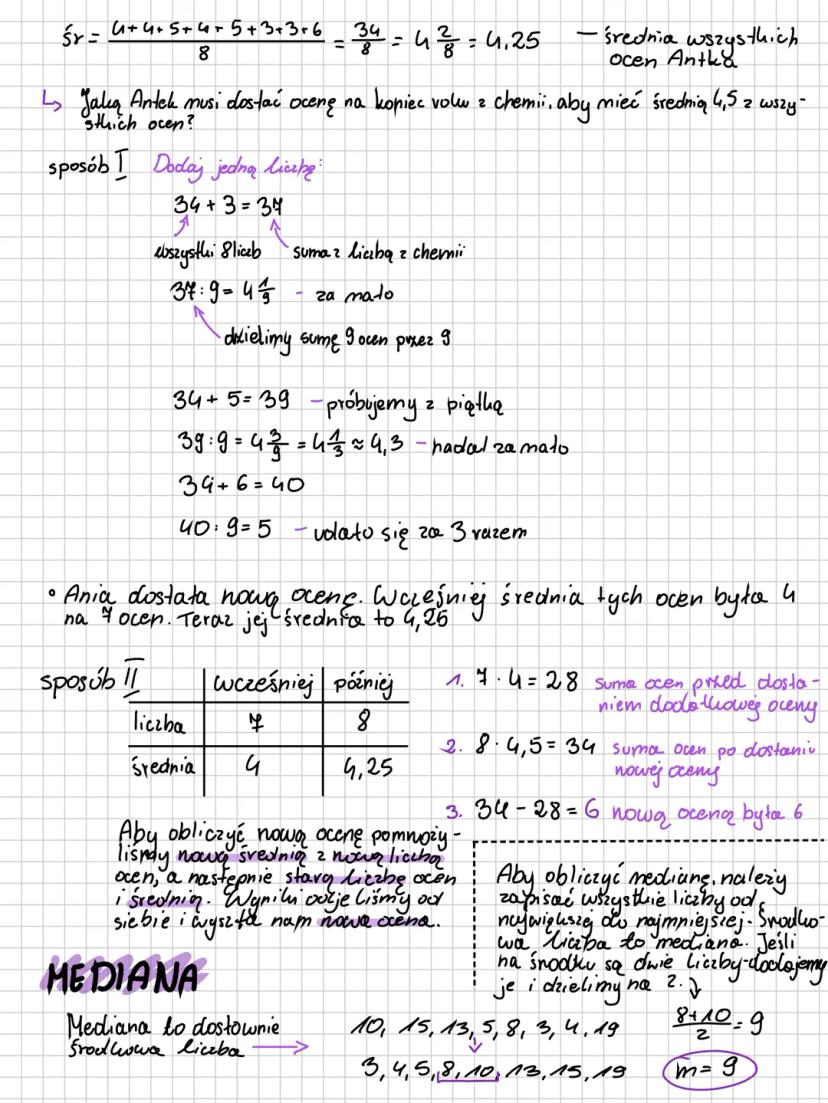 śr = 4+4+5+4+5+3+3+6 / 8 = 34/8 = 4 2/8 = 4,25 — średnia wszystkich
ocen Antka
↳ Jaką Antek musi dostać ocenę na koniec roku z chemii, aby mieć średnią 4,5 z wszy-
stkich ocen?
sposób I Dodaj jedną liczbę:
34 + 3 = 37
wszystki 8 liczb suma z liczbą z chemii
37 : 9 = 4 1/9 - za mało
dzielimy sumę 9 ocen przez 9
34 + 5 = 39 - próbujemy z piątką
39 : 9 = 4 3/9 = 4 1/3 ≈ 4,3 - nadal za mało
34 + 6 = 40
40 : 9 = 5 - udało się za 3 razem
• Ania dostała nową ocenę. Wcześniej średnia tych ocen była 4
na 7 ocen. Teraz jej średnia to 4,25
sposób II
wcześniej później
liczba 7 8
średnia 4 4,25
1. 7 · 4 = 28 suma ocen przed dosta-
niem dodatkowej oceny
2. 8 · 4,5 = 34 suma ocen po dostaniu
nowej oceny
3. 34 - 28 = 6 nową oceną była 6
Aby obliczyć nową ocenę pomnoży-
liśmy nową średnią z nową liczbą
ocen, a następnie starą liczbę ocen
i średnią. Wyniki odjeliśmy od
siebie i wyszła nam nowa ocena.
Aby obliczyć medianę, należy
zapisać wszystkie liczby od
największej do najmniejszej. Środko-
wa liczba to mediana. Jeśli
na środku są dwie liczby-dodajemy
je i dzielimy na 2.
MEDIANA
Mediana to dosłownie
środkowa liczba →
10, 15, 13, 5, 8, 3, 4, 19
3, 4, 5, 8, 10, 13, 15, 19
8+10 / 2 = 9
m = 9